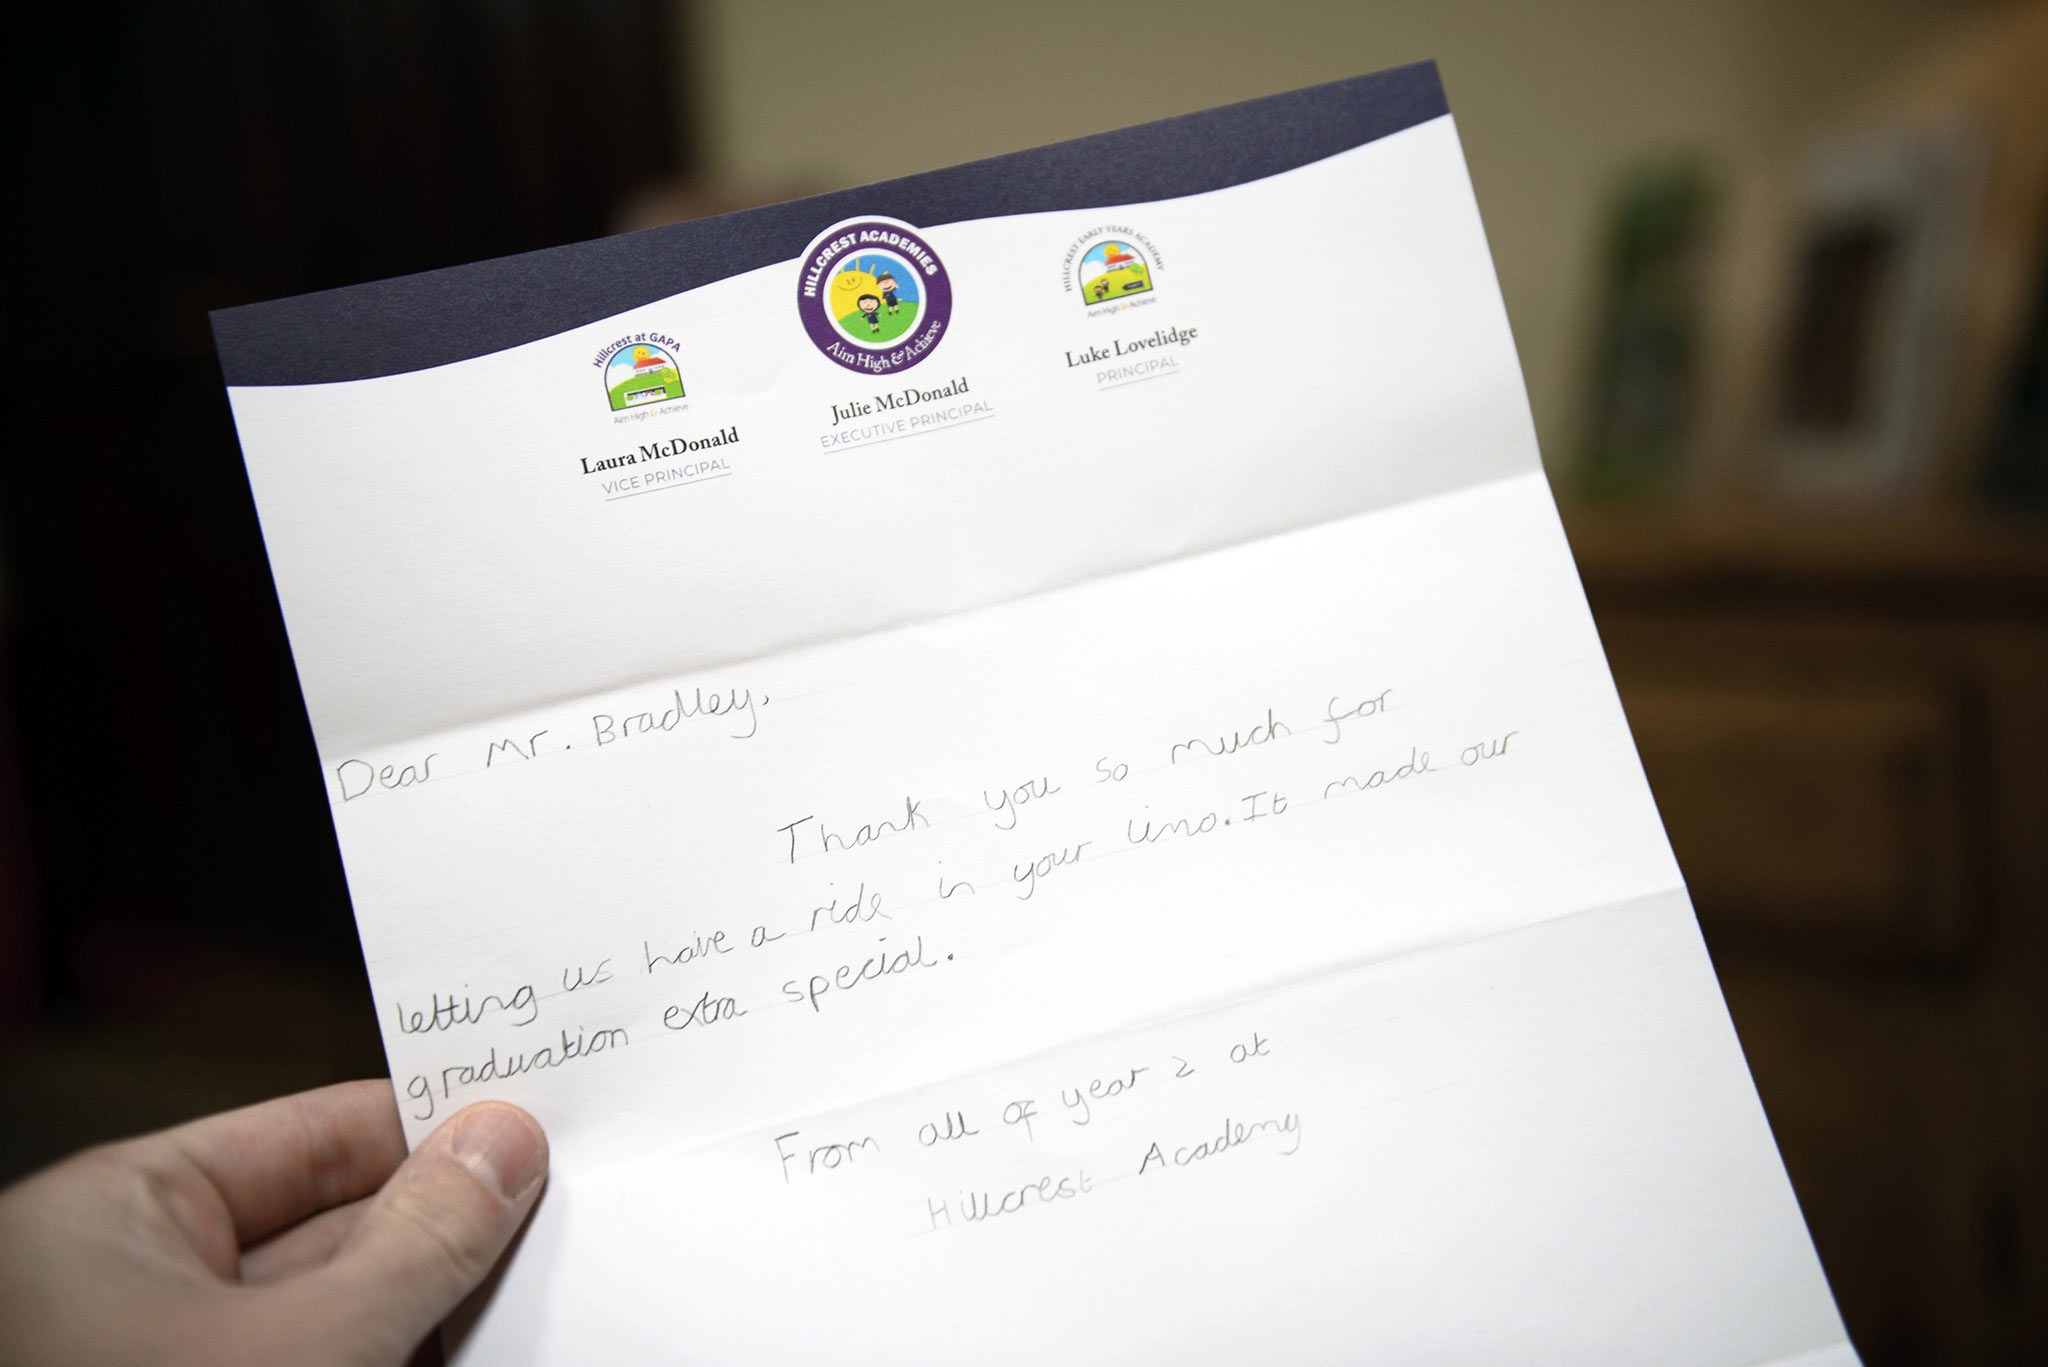 HILLCREST ACADEMIES
Aim High & Achieve
Hillcrest at GAPA
Aim High & Achieve
Laura McDonald
VICE PRINCIPAL
Julie McDonald
EXECUTIVE PRINCIPAL
HILLCREST EARLY YEARS ACADEMY
Aim High & Achieve
Luke Lovelidge
PRINCIPAL
Dear Mr. Bradley,
Thank you so much for
letting us have a ride in your limo. It made our
graduation extra special.
From all of year 2 at
Hillcrest Academy